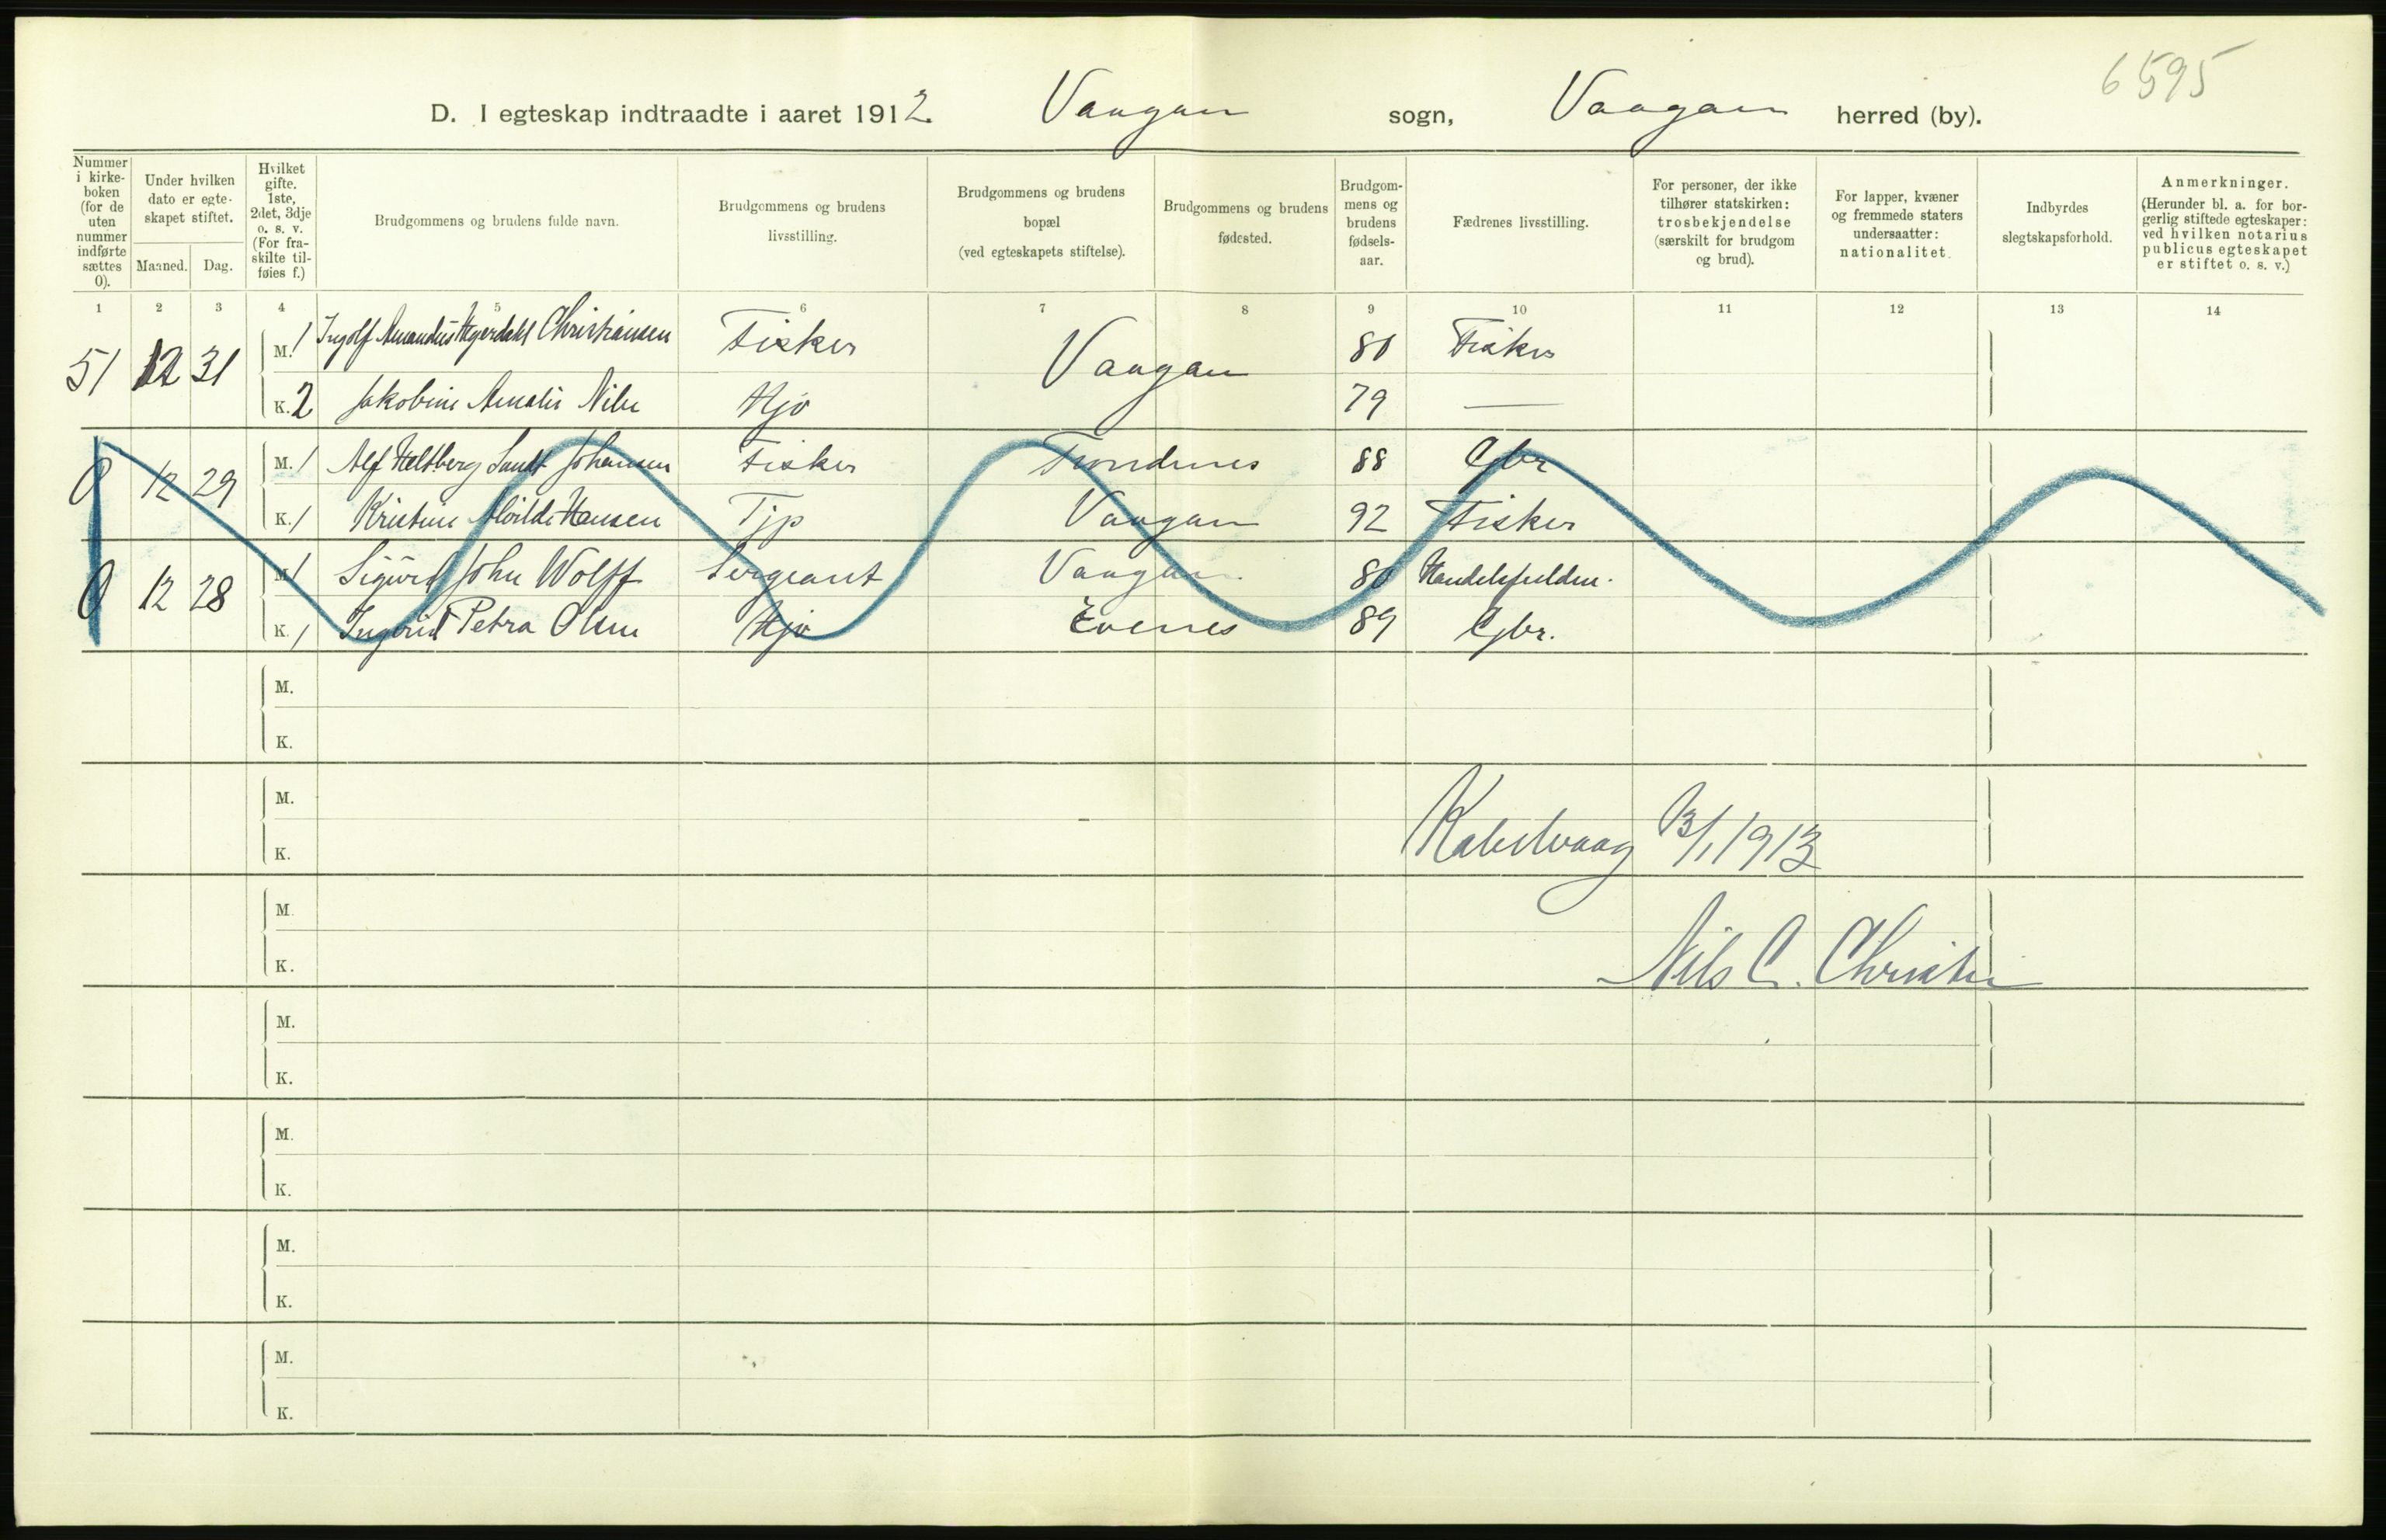 6595
D. I egteskap indtraadte i aaret 1912. Vaagan sogn, Vaagan herred (by).
Nummer i kirke-boken (for de uten nummer indførte sættes 0).
Under hvilken dato er egte-skapet stiftet.
Maaned. Dag.
Hvilket gifte. 1ste, 2det, 3dje o. s. v. (For fra-skilte til-føies f.)
Brudgommens og brudens fulde navn.
Brudgommens og brudens livsstilling.
Brudgommens og brudens bopæl (ved egteskapets stiftelse).
Brudgommens og brudens fødested.
Brudgom-mens og brudens fødsels-aar.
Fædrenes livsstilling.
For personer, der ikke tilhører statskirken: trosbekjendelse (særskilt for brudgom og brud).
For lapper, kvæner og fremmede staters undersaatter: nationalitet.
Indbyrdes slegtskapsforhold.
Anmerkninger. (Herunder bl. a. for bor-gerlig stiftede egteskaper: ved hvilken notarius publicus egteskapet er stiftet o. s. v.)
1 2 3 4 5 6 7 8 9 10 11 12 13 14
51 12 31 M. 1 Ingolf Amandus Christiansen Fisker Vaagan 80 Fisker
K. 2 Jakobine Amalie Hjv 79 —
0 12 29 M. 1 Alf Johansen Fisker Trondenes 88 Gbr
K. 1 Kristine Alvilde Hansen Tjp Vaagan 92 Fisker
0 12 28 M. 1 Sigurd John Wolff Sergeant Vaagan 80
K. 1 Ingerid Petra Olsen Hjv Evenes 89 Gbr.
M.
K.
M.
K.
Kabelvaag 13/1 1913
M.
K.
Nils C. Christie
M.
K.
M.
K.
M.
K.
M.
K.